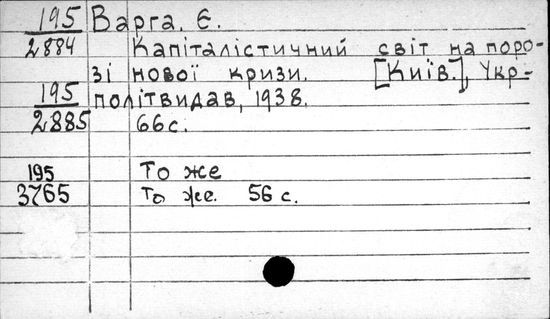 195 Варга, Є.
2884 Капіталістичний світ на поро-
зі нової кризи. [Київ.], Укр-
195 політвидав, 1938.
2885 66 с.
195 То же
3765 То же. 56 с.